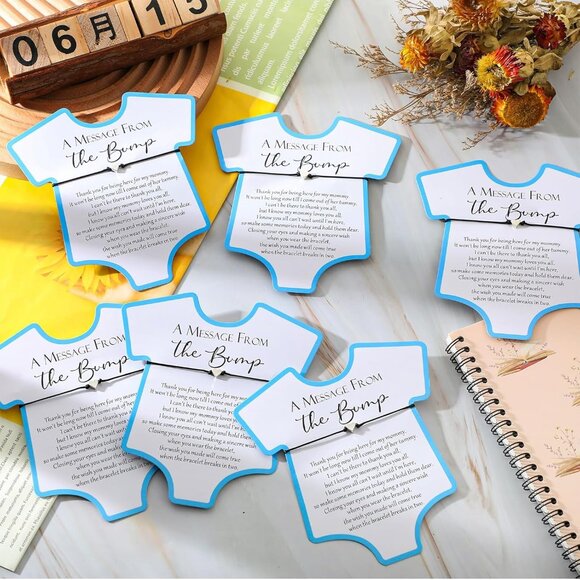 06 月 15
A Message From
the Bump
Thank you for being here for my mommy.
It won't be long now till I come out of her tummy.
I can't be there to thank you all,
but I know my mommy loves you all.
I know you all can't wait until I'm here,
so make some memories today and hold them dear.
Closing your eyes and making a sincere wish
when you wear the bracelet,
the wish you made will come true
when the bracelet breaks in two.
A Message From
the Bump
Thank you for being here for my mommy.
It won't be long now till I come out of her tummy.
I can't be there to thank you all,
but I know my mommy loves you all.
I know you all can't wait until I'm here,
so make some memories today and hold them dear.
Closing your eyes and making a sincere wish
when you wear the bracelet,
the wish you made will come true
when the bracelet breaks in two.
A Message From
the Bump
Thank you for being here for my mommy.
It won't be long now till I come out of her tummy.
I can't be there to thank you all,
but I know my mommy loves you all.
I know you all can't wait until I'm here,
so make some memories today and hold them dear.
Closing your eyes and making a sincere wish
when you wear the bracelet,
the wish you made will come true
when the bracelet breaks in two.
A Message From
the Bump
Thank you for being here for my
It won't be long now till I come out of
I can't be there to thank you
but I know my mommy loves
I know you all can't wait until
so make some memories today and hold
Closing your eyes and making a sincere
when you wear the bracelet,
the wish you made will come true
when the bracelet breaks in two.
A Message From
the Bump
Thank you for being here for my mommy.
It won't be long now till I come out of her
I can't be there to thank you all,
but I know my mommy loves you
I know you all can't wait until I'm
so make some memories today and hold them
Closing your eyes and making a sincere wish
when you wear the bracelet,
the wish you made will come true
when the bracelet breaks in two.
A Message From
the Bump
Thank you for being here for my mommy.
It won't be long now till I come out of her tummy.
I can't be there to thank you all,
but I know my mommy loves you all.
I know you all can't wait until I'm here,
so make some memories today and hold them dear.
Closing your eyes and making a sincere wish
when you wear the bracelet,
the wish you made will come true
when the bracelet breaks in two.